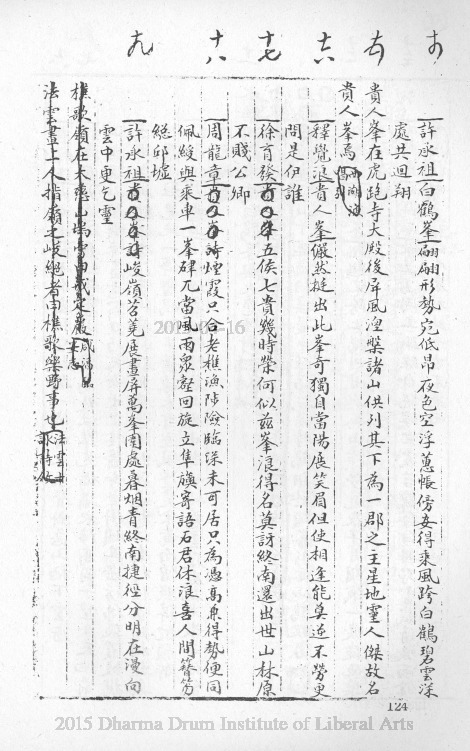 许承祖白鶴峯翩翩形勢宛低昂夜色空浮蕙帳傍安得乘風跨白鶴碧雲深
處共迴翔
貴人峯在虎跑寺大殿後屏風湟槃諸山供列其下為一郡之主星地靈人傑故名
貴人峯焉
釋覺浪貴人峯儼然挺出此峯奇獨自當陽展笑眉但使相逢能莫逆不勞更
問是伊誰
徐育發五侯七貴幾時榮何似茲峯浪得名莫訝終南還出世山林原
不賤公卿
周龍章詩煙霞只合老樵漁陟險臨深未可居只為憑高泉得勢便同
佩綬與乘車一峯碑兀當風雨衆壑回旋立隼旟寄語石君休浪喜人間簪笏
絕邱墟
許承祖詩峻嶺苕荛展畫屏萬峯圍處暮烟青終南捷徑分明在漫向
雲中更乞靈
樵歌嶺在大慈山塢曹由戒定巖
法雲晝上人指嶺之峻絕者曰樵歌樂野事也
124
2015 Dharma Drum Institute of Liberal Arts